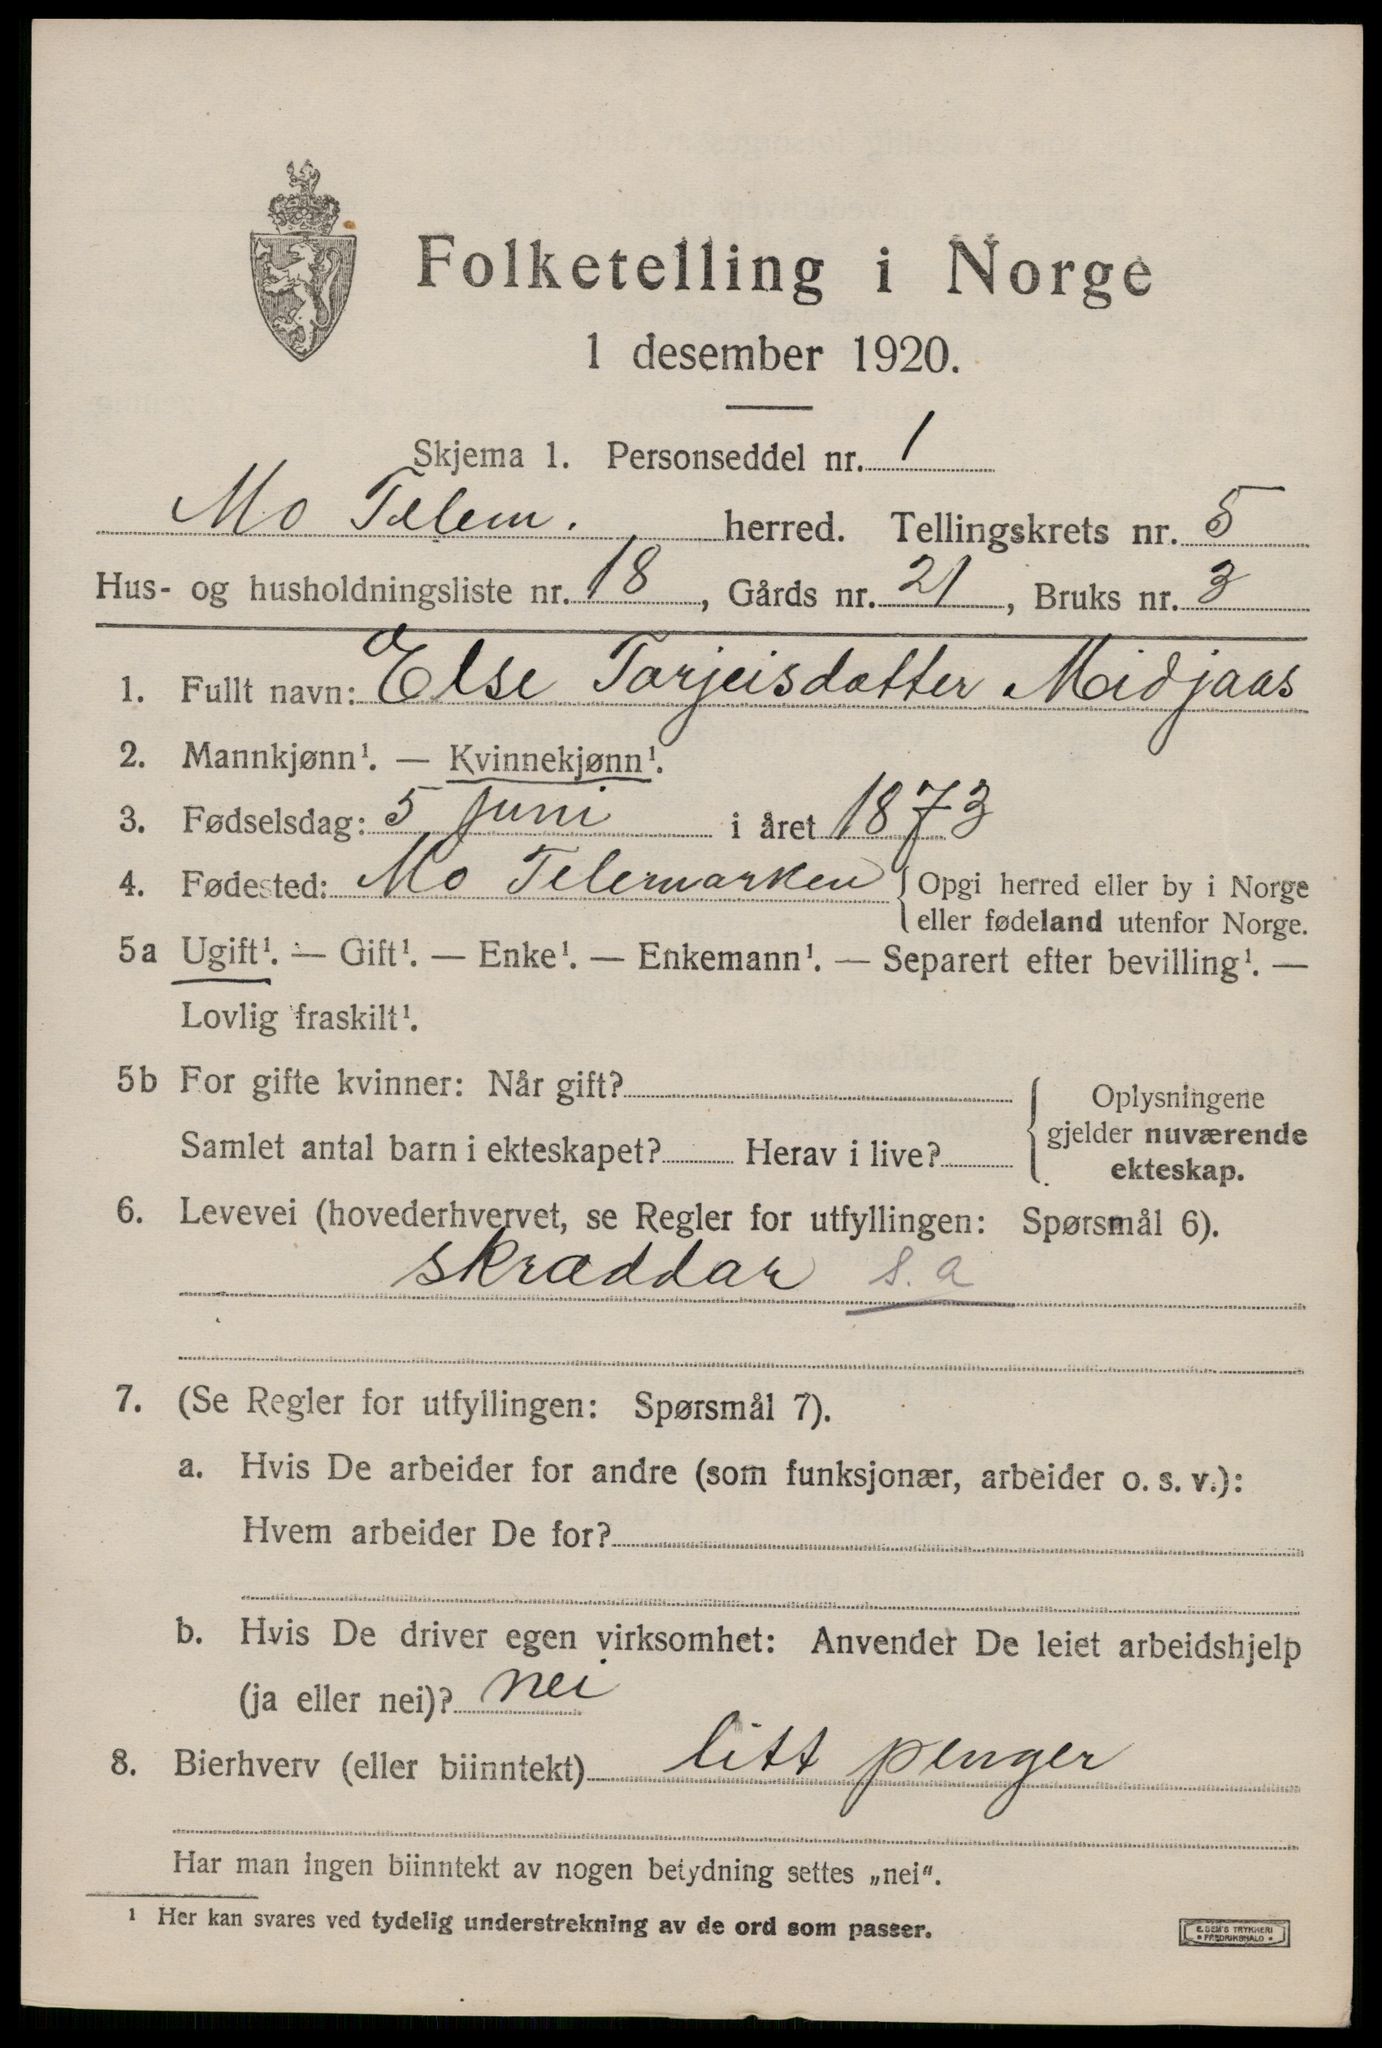 Folketelling i Norge
1 desember 1920.
Skjema 1. Personseddel nr. 1
Mo Telem. herred. Tellingskrets nr. 5
Hus- og husholdningsliste nr. 18, Gårds nr. 21, Bruks nr. 3
1. Fullt navn: Else Tarjeisdatter Midjaas
2. Mannkjønn¹. — Kvinnekjønn¹.
3. Fødselsdag: 5 juni i året 1873
4. Fødested: Mo Telemarken { Opgi herred eller by i Norge
eller fødeland utenfor Norge.
5a Ugift¹. — Gift¹. — Enke¹. — Enkemann¹. — Separert efter bevilling¹. —
Lovlig fraskilt¹.
5b For gifte kvinner: Når gift?
Samlet antal barn i ekteskapet? Herav i live?
Oplysningene
gjelder nuværende
ekteskap.
6. Levevei (hovederhvervet, se Regler for utfyllingen: Spørsmål 6).
skræddar s.a
7. (Se Regler for utfyllingen: Spørsmål 7).
a. Hvis De arbeider for andre (som funksjonær, arbeider o. s. v.):
Hvem arbeider De for?
b. Hvis De driver egen virksomhet: Anvender De leiet arbeidshjelp
(ja eller nei)? nei
8. Bierhverv (eller biinntekt) litt penger
Har man ingen biinntekt av nogen betydning settes „nei“.
¹ Her kan svares ved tydelig understrekning av de ord som passer.
E. SEM'S TRYKKERI
FREDRIKSHALD